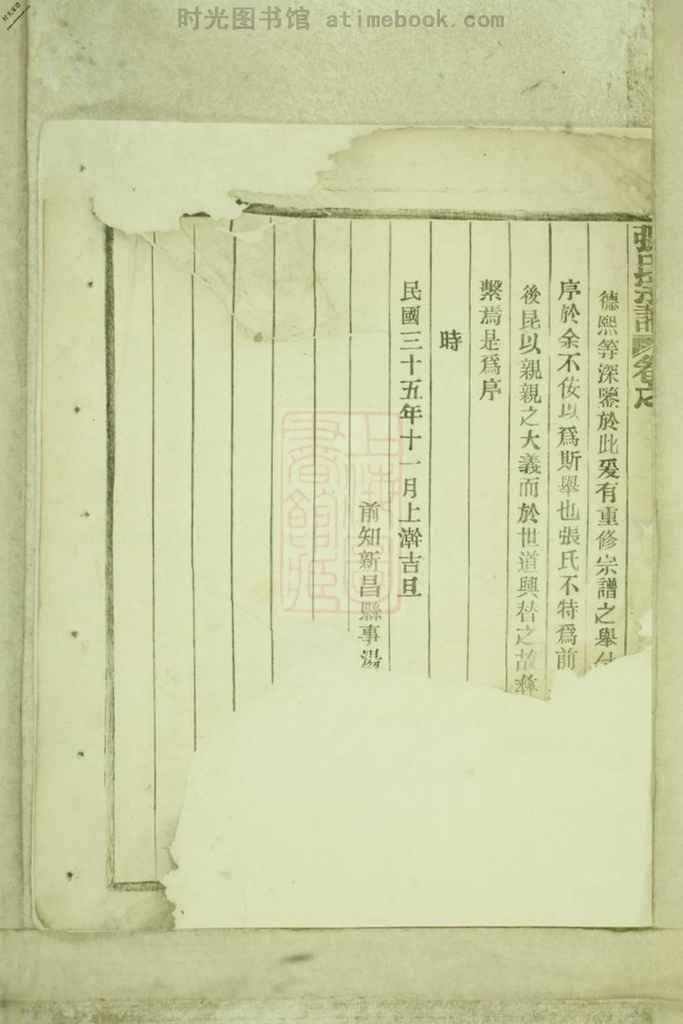 时光图书馆 atimebook.com
德熙等深鑒於此爰有重修宗譜之舉
序於余不佞以爲斯舉也張氏不特爲前
後昆以親親之大義而於世道興替之故
繫焉是爲序
時
民國三十五年十一月上澣吉旦
前知新昌縣事湯